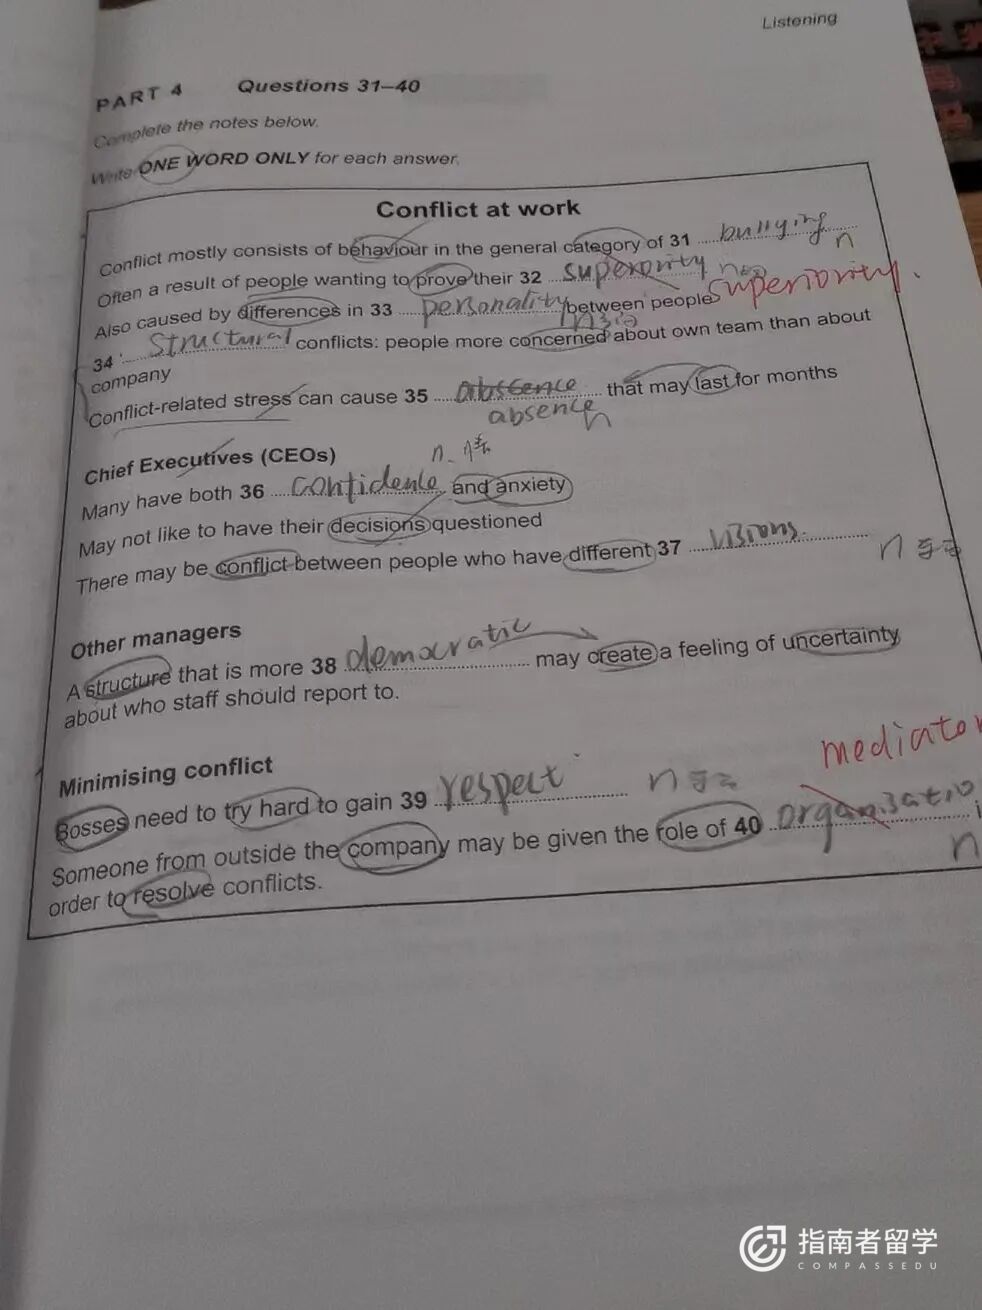 Listening
PART 4 Questions 31–40
Complete the notes below.
Write ONE WORD ONLY for each answer.
Conflict at work
Conflict mostly consists of behaviour in the general category of 31 bullying n
Often a result of people wanting to prove their 32 superority superiority.
Also caused by differences in 33 personality between people
34 structural conflicts: people more concerned about own team than about
company
Conflict-related stress can cause 35 abscence that may last for months
absence n
Chief Executives (CEOs)
Many have both 36 confidence and anxiety
May not like to have their decisions questioned
There may be conflict between people who have different 37 visions. n
Other managers
A structure that is more 38 democratic may create a feeling of uncertainty
about who staff should report to.
Minimising conflict
mediator
Bosses need to try hard to gain 39 respect n
Someone from outside the company may be given the role of 40 organisatio i
order to resolve conflicts. n
指南者留学
COMPASSEDU